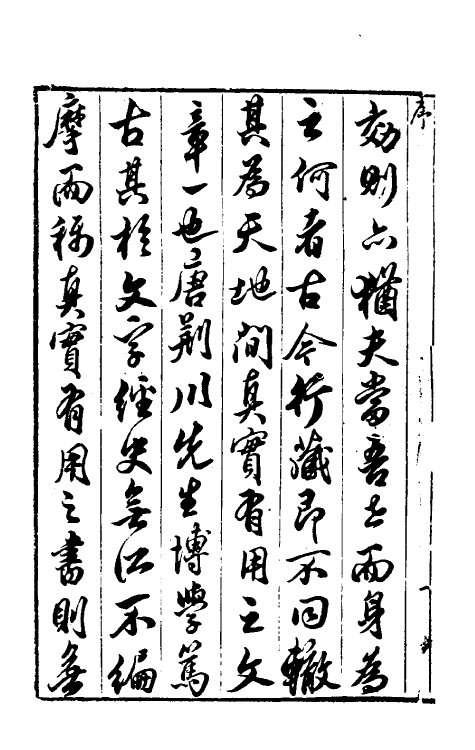 序
效則亦猶夫當吾世而身為
之何者古今行藏即不同轍
其為天地間真實有用之文
章一也唐荊川先生博學篤
古其於文字經史無所不編
摩而稱真實有用之書則無
一